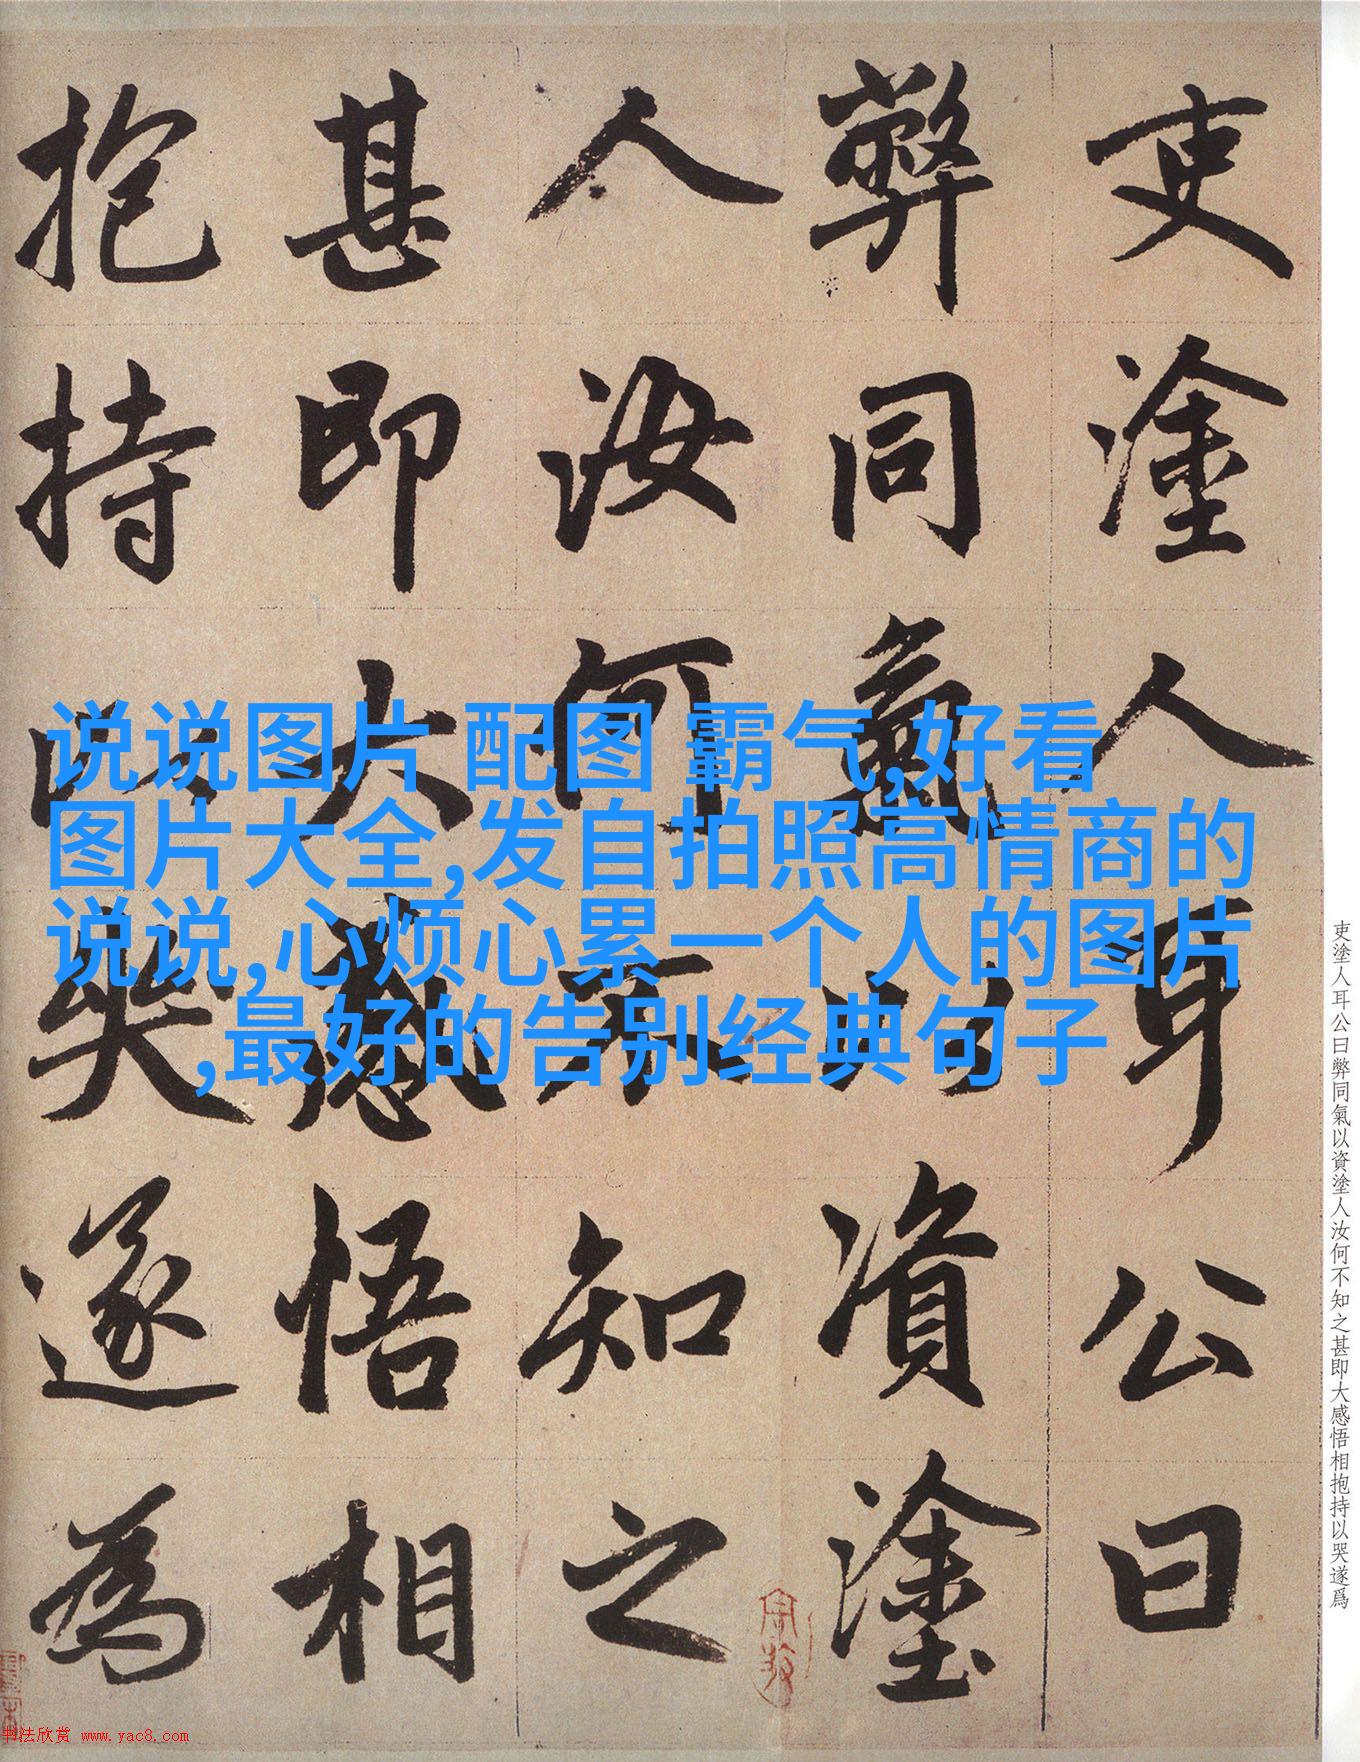 吏塗人耳公曰
弊同氣以資塗
人汝何不知之
甚即大感悟相
抱持以哭遂為
说说图片 配图 霸气,好看
图片大全,发自拍照高情商的
说说,心烦心累一个人的图片
,最好的告别经典句子
吏塗人耳公曰弊同氣以資塗人汝何不知之甚即大感悟相抱持以哭遂爲
书法欣赏 www.yac8.com